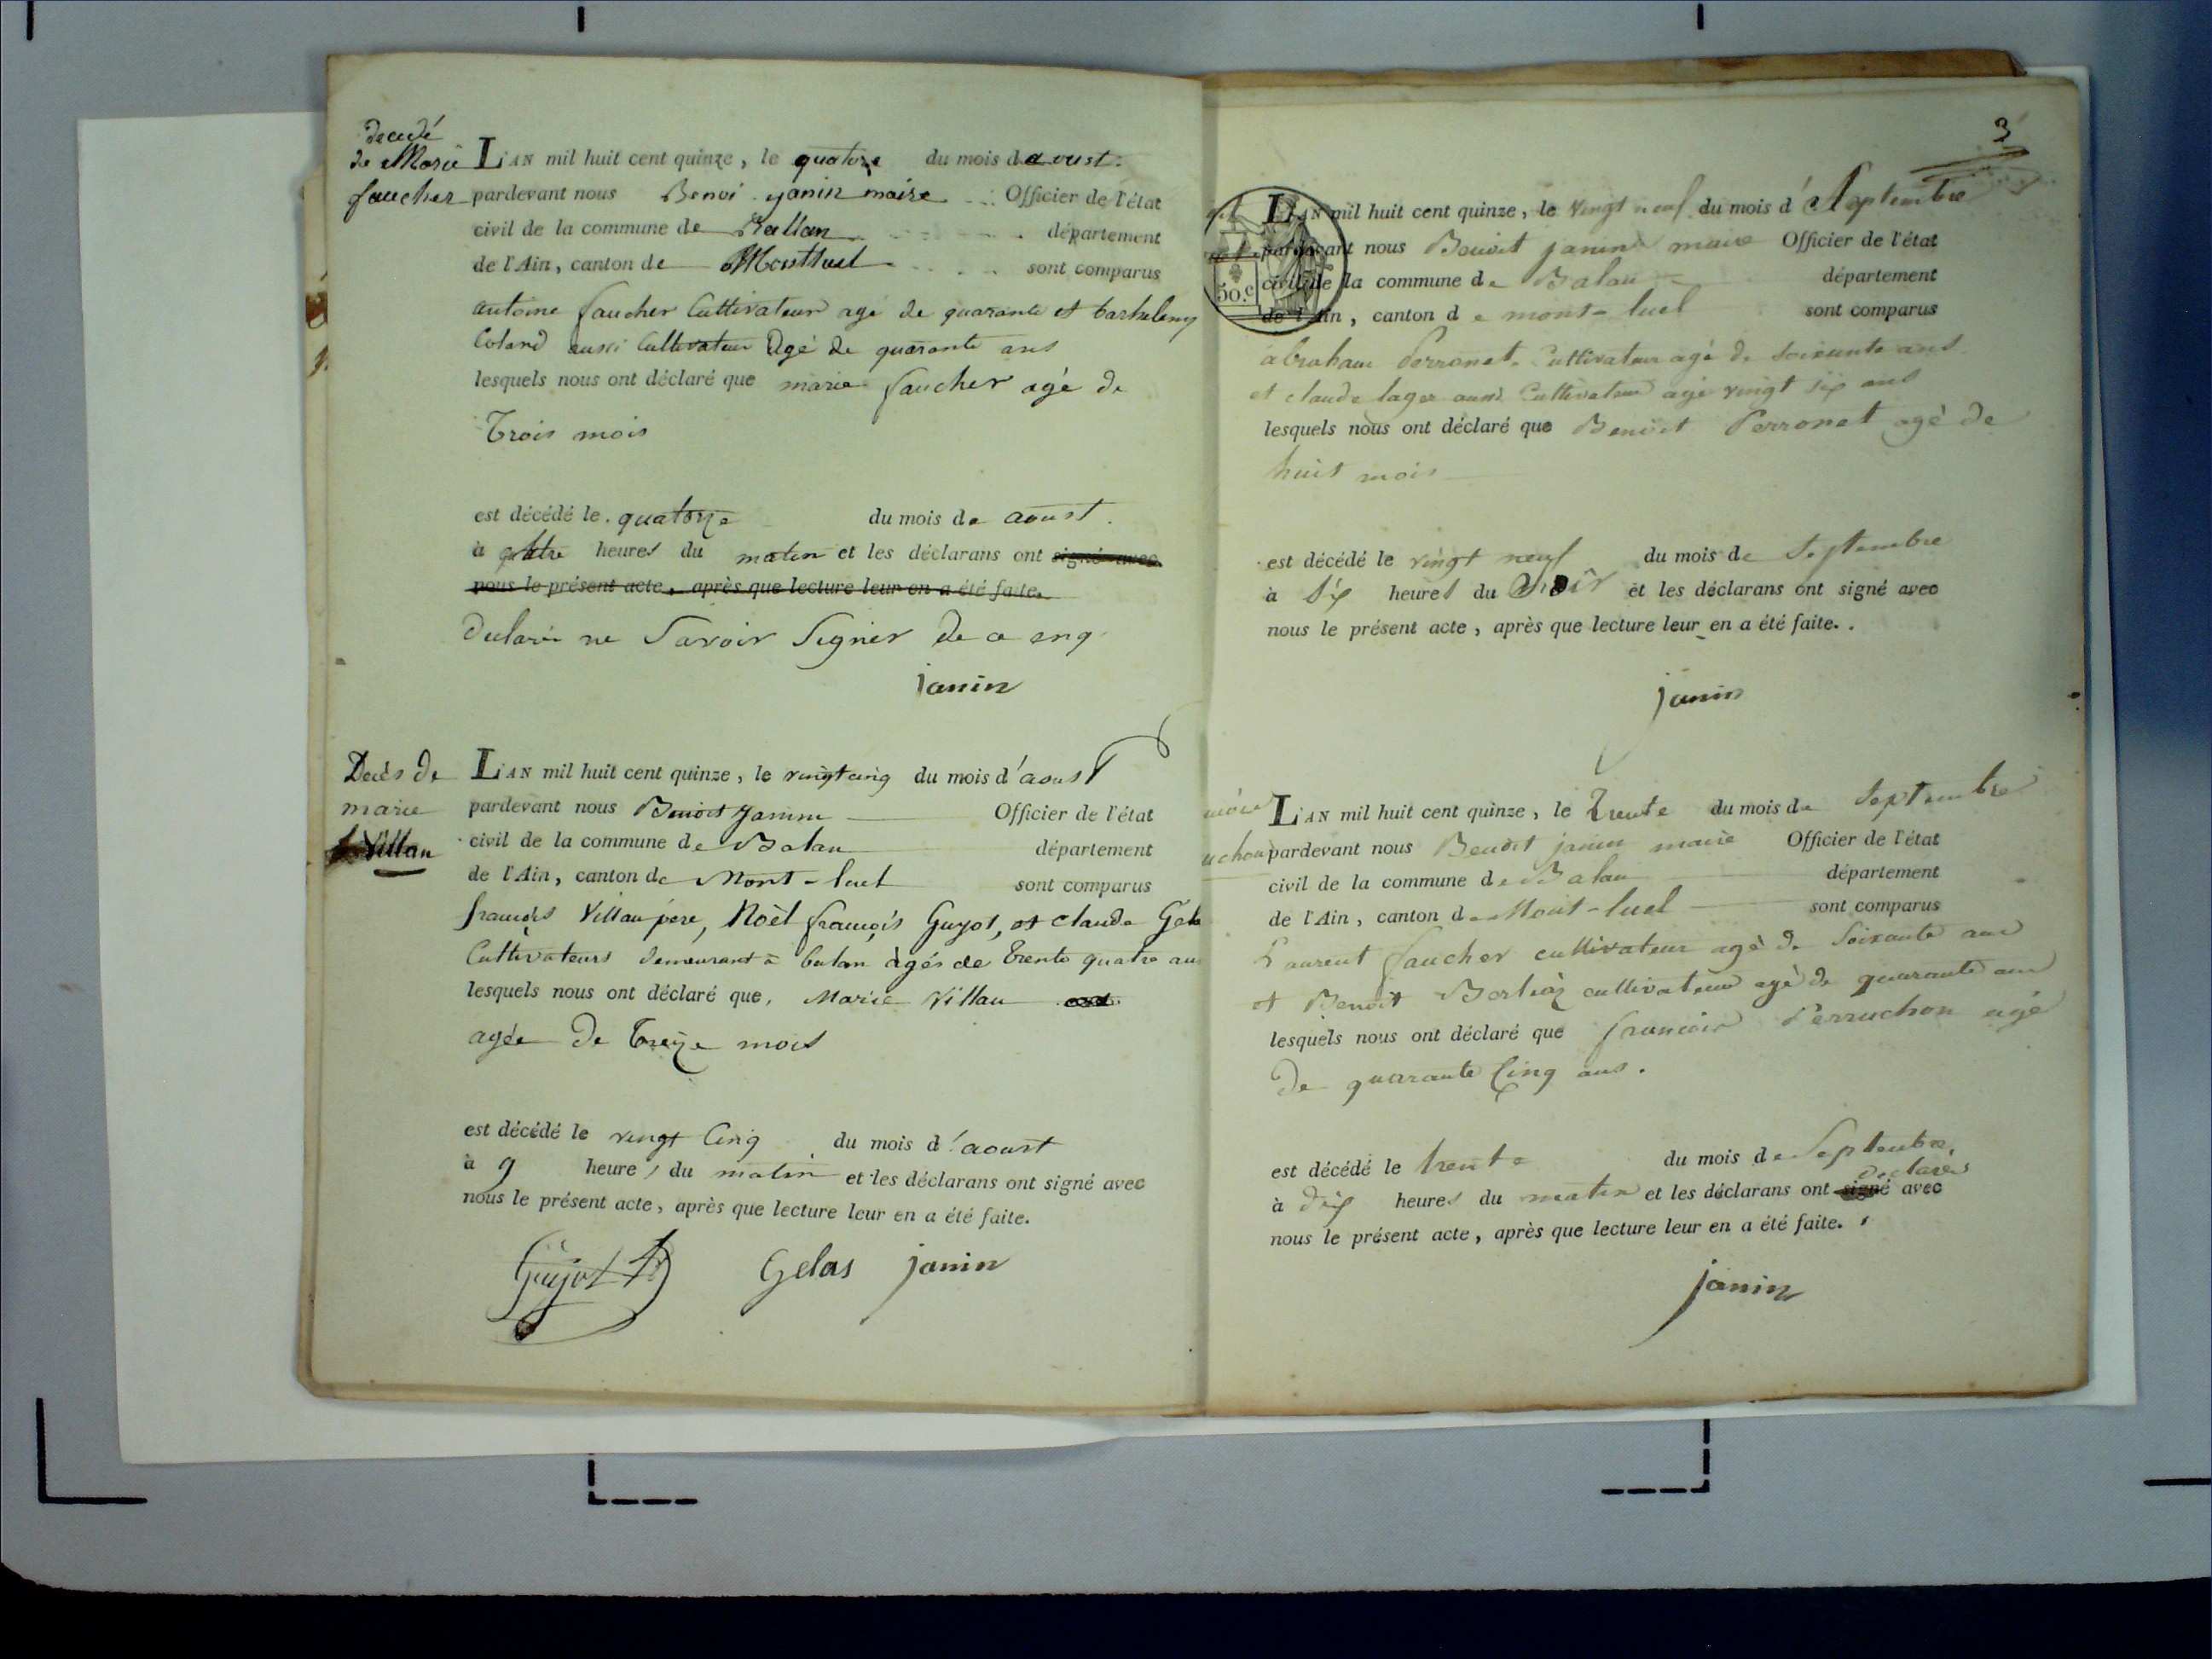 decedé
de Marie
faucher
L'AN mil huit cent quinze, le quatorze du mois d aoust
pardevant nous Benoi yanin maire Officier de l'état
civil de la commune de Ballan département
de l'Ain, canton de Montluel sont comparus
antoine faucher Cultivateur agé de quarante et barthelemy
Coland aussi Cultivateur Agé de quarante ans
lesquels nous ont déclaré que marie faucher agé de
Trois mois
est décédé le quatorze du mois de aoust.
à heures du matin et les déclarans ont signé avec
nous le présent acte, après que lecture leur en a été faite.
ne Savoir Signer de ce enq
janin
Decès de
marie
Villan
L'AN mil huit cent quinze, le vingt cinq du mois d'aoust
pardevant nous Benoit Janin Officier de l'état
civil de la commune de Balan département
de l'Ain, canton de Mont-luel sont comparus
françois Villan père, Noèl françois Guyot, et claude Gela
Cultivateurs demeurant à balan àgés de trente quatre ans
lesquels nous ont déclaré que, Marie Villan
agée De treize mois
est décédé le vingt Cinq du mois d'aoust
à 9 heures du matin et les déclarans ont signé avec
nous le présent acte, après que lecture leur en a été faite.
Guyot Gelas janin
3
50.c
L'AN mil huit cent quinze, le vingt neuf du mois d' Septembre
pardevant nous Benoit janin maire Officier de l'état
civil de la commune de Balan département
de l'Ain, canton de mont-luel sont comparus
abraham Perronet Cultivateur agé de soixante ans
et claude lager aussi Cultivateur agé vingt six ans
lesquels nous ont déclaré que Benoit Perronet agé de
huit mois
est décédé le vingt neuf du mois de Septembre
à Six heures du Soir et les déclarans ont signé avec
nous le présent acte, après que lecture leur en a été faite.
janin
uchon
L'AN mil huit cent quinze, le Trente du mois de Septembre
pardevant nous Benoit janin maire Officier de l'état
civil de la commune de Balan département
de l'Ain, canton de Mont-luel sont comparus
Laurent faucher cultivateur agé de Soixante ans
et Benoit Berlioz cultivateur agé de quarante ans
lesquels nous ont déclaré que francois Perruchon agé
De quarante Cinq ans.
est décédé le trente du mois de Septembre,
declarés
à dix heures du matin et les déclarans ont signé avec
nous le présent acte, après que lecture leur en a été faite.
janin